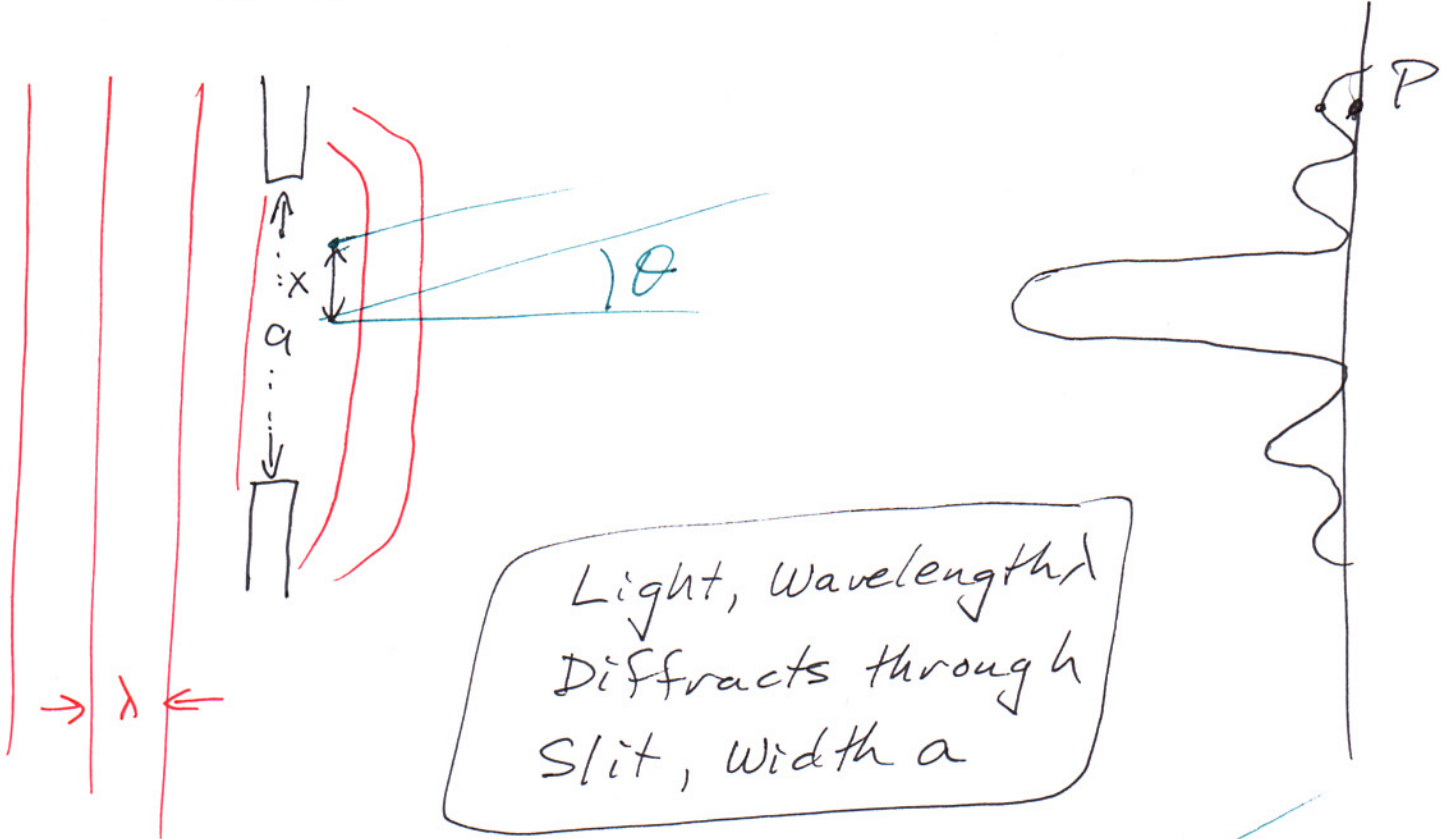 P
x
θ
a
λ
Light, Wavelength λ
Diffracts through
Slit, Width a